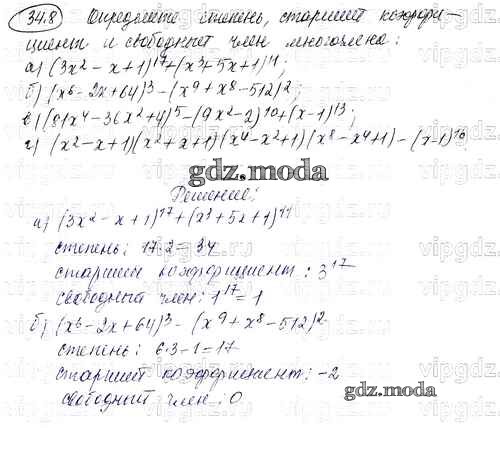 34.8 Определите степень, старший коэффи-
циент и свободный член многочлена:
а) (3x² - x + 1)¹⁷ + (x³ + 5x + 1)¹¹;
б) (x⁶ - 2x + 64)³ - (x⁹ + x⁸ - 512)²;
в) (81x⁴ - 36x² + 4)⁵ - (9x² - 2)¹⁰ + (x - 1)¹³;
г) (x² - x + 1)(x² + x + 1)(x⁴ - x² + 1)(x⁸ - x⁴ + 1) - (x - 1)¹⁶
gdz.moda
Решение:
а) (3x² - x + 1)¹⁷ + (x³ + 5x + 1)¹¹
степень: 17·2 = 34
старший коэффициент: 3¹⁷
свободный член: 1¹⁷ = 1
б) (x⁶ - 2x + 64)³ - (x⁹ + x⁸ - 512)²
степень: 6·3 - 1 = 17
старший коэффициент: -2
gdz.moda
свободный член: 0